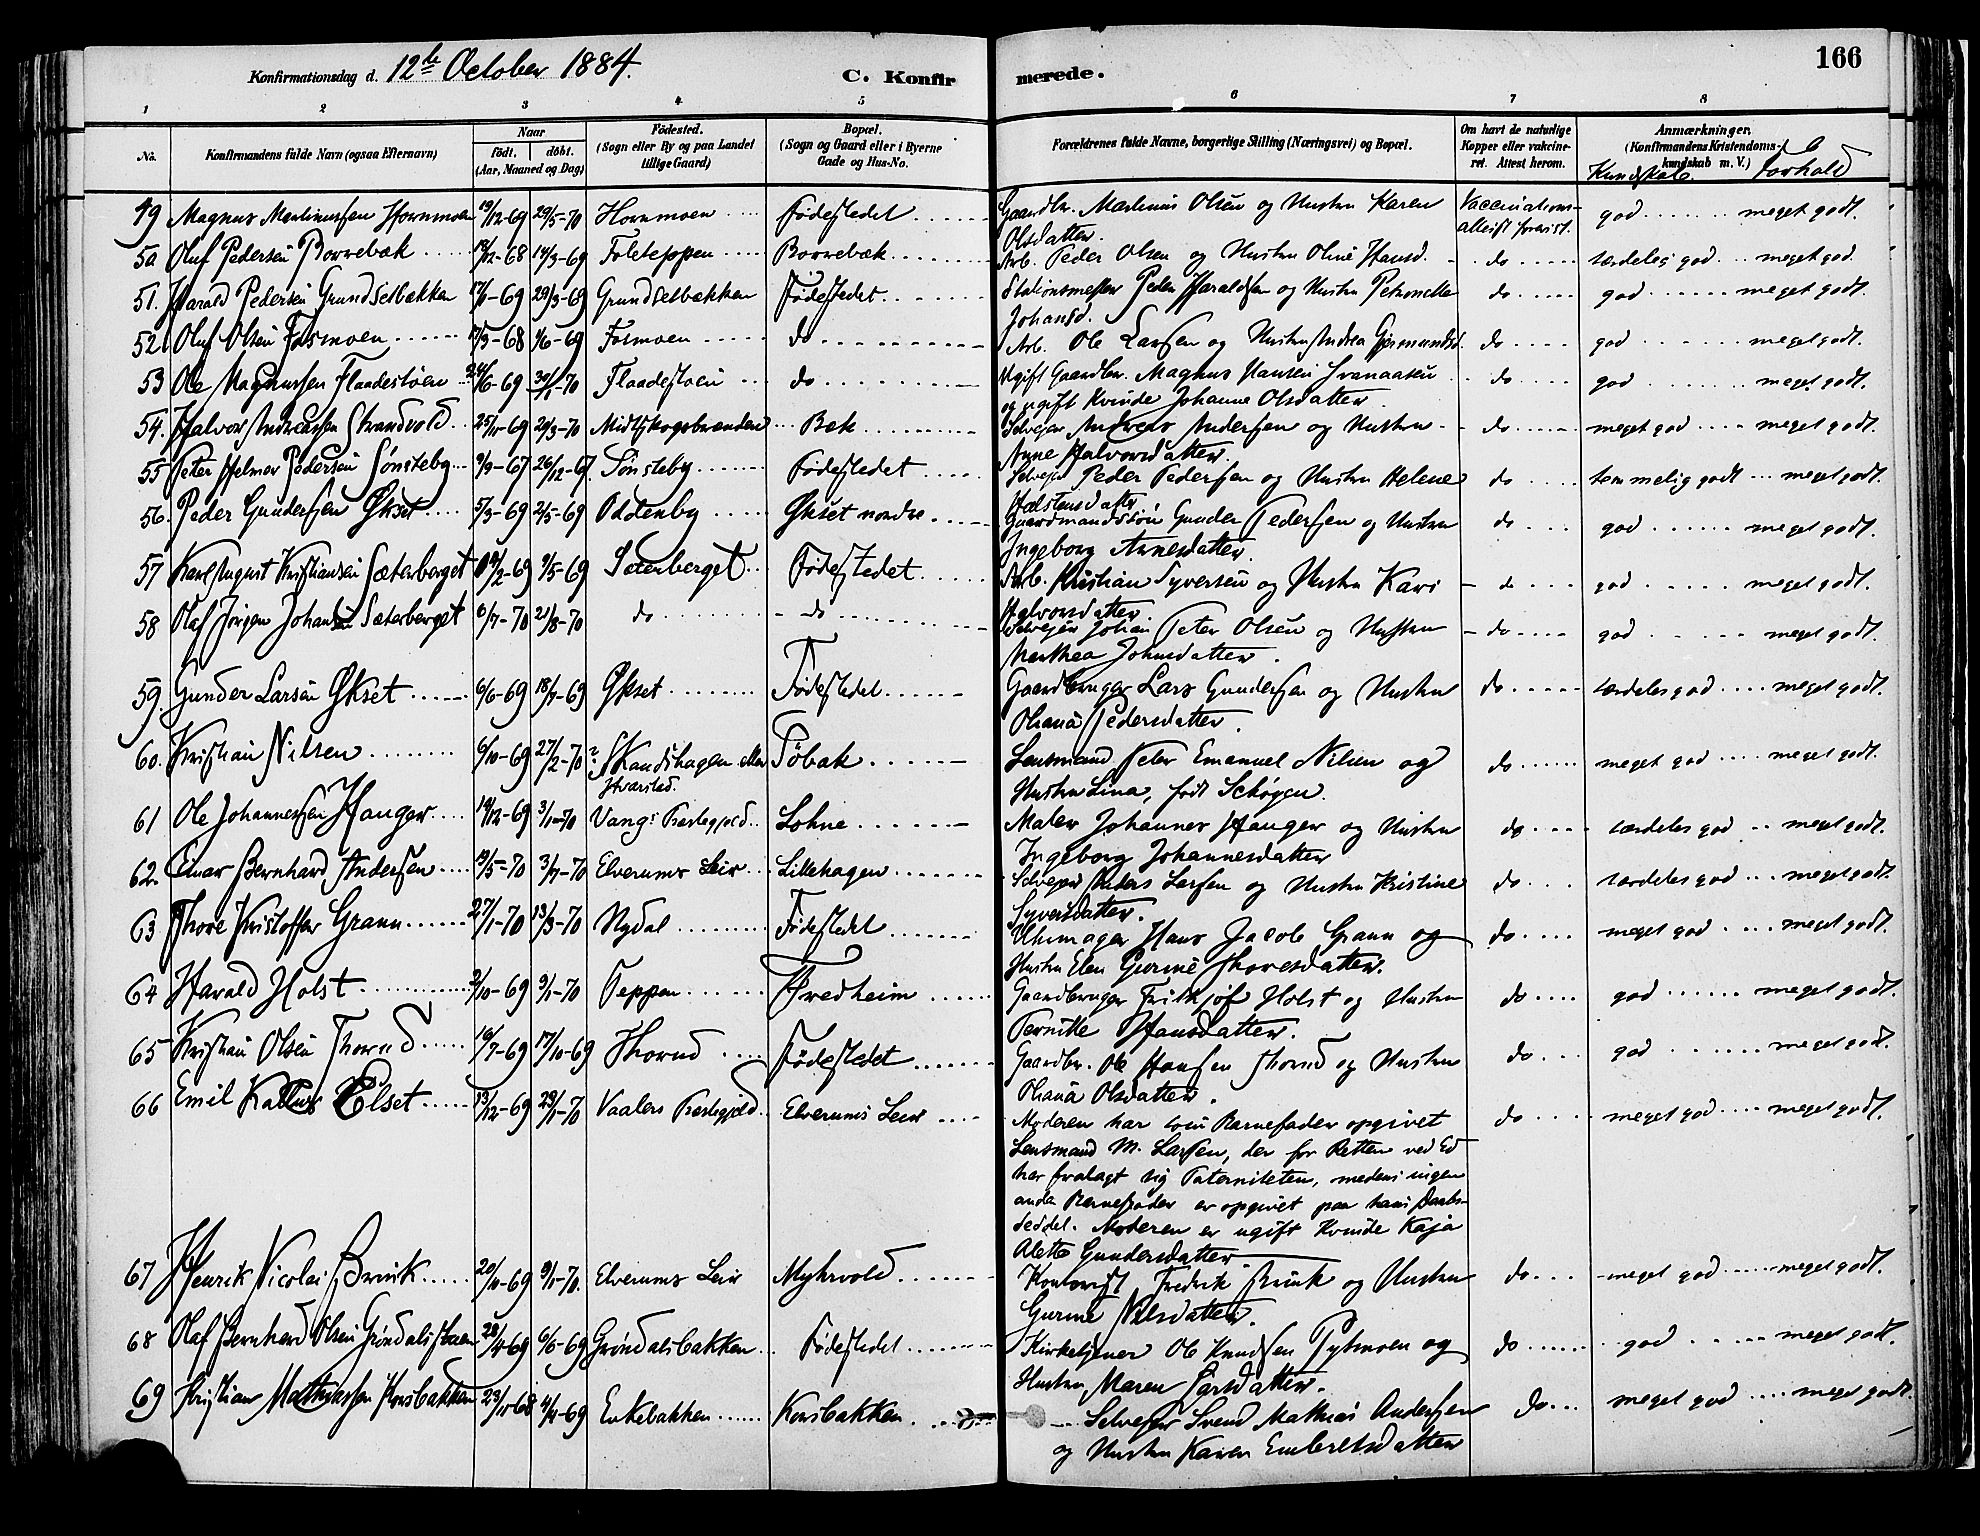 Konfirmationsdag d. 12te October 1884.
C. Konfirmerede.
166
1 2 3 4 5 6 7 8
No. Konfirmandens fulde Navn (ogsaa Efternavn) Naar født, døbt. (Aar, Maaned og Dag) Fødested. (Sogn eller By og paa Landet tillige Gaard) Bopæl. (Sogn og Gaard eller i Byerne Gade og Hus-No. Forældrenes fulde Navne, borgerlige Stilling (Næringsvei) og Bopæl. Om havt de naturlige Kopper eller vakcineret. Attest herom. Anmærkninger. (Konfirmandens Kristendomskundskab m. V.) Kundskab Forhold
49 Magnus Martinussen Hornmoen 19/12-69 29/5-70 Hornmoen Fødestedet Gaardbr. Martinus Olsen og Hustru Karen Olsdatter. Vaccinationsattest forevist. god meget godt.
50 Oluf Pedersen Borrebæk 18/12-68 14/3-69 Foleteppen Borrebæk Arb. Peder Olsen og Hustru Oline Hansd. do særdeles god meget god
51. Harald Pedersen Grundsetbækken 17/1-69 29/3-69 Grundsetbækken Fødestedet Stationsmester Peder Haraldsen og Hustru Petronelle Johansd. do god meget godt.
52 Oluf Olsen Fosmoen 17/3-68 1/6-69 Fosmoen do Arb. Ole Larsen og Hustru Andrea Gjermundsd. do god meget godt.
53 Ole Magnussen Flaadestøen 24/6-69 30/1-70 Flaadestøen do Ugift Gaardbr. Magnus Hansen Svenaasen og ugift Kvinde Johanne Olsdatter do god meget godt.
54. Halvor Andreassen Strandvold 25/11-69 20/3-70 Midtskogsbrænden Bæk Selveier Andreas Andersen og Hustru Anne Halvorsdatter. do meget god meget godt.
55 Peter Helmer Pedersen Sønsteby 9/9-67 26/12-67. Sønsteby Fødestedet Selveier Peder Pedersen og Hustru Helene Halstensdatter do temmelig godt meget godt.
56. Peder Gundersen Økset 5/3-69 2/5-69 Oddenby Økset nordre Gaardmandssøn Gunder Pedersen og Hustru Ingeborg Arnesdatter. do god meget godt.
57 Karl August Kristiansen Sæterberget 19/2-69 9/5-69 Sæterberget Fødestedet Arb. Kristian Syversen og Hustru Kari Halvorsdatter do god meget godt.
58 Olaf Jørgen Johansen Sæterberget 6/7-70 21/8-70 do do Selveier Johan Peter Olsen og Hustru Marthea Johnsdatter. do god meget godt.
59. Gunder Larsen Økset 6/6-69 18/7-69 Økset Fødestedet Gaardbruger Lars Gundersen og Hustru Oliana Pedersdatter. do særdeles god meget godt.
60. Kristian Nilsen 6/10-69 27/2-70 ? Strandshagen eller Hvarstad. Tøbak Lensmand Peter Emanuel Nilsen og Hustru Lina, født Schøyen. do meget god meget godt.
61 Ole Johannessen Hanger 14/12-69 3/1-70 Vangs Præstegjeld Lohne Maler Johannes Hanger og Hustru Ingeborg Johannesdatter do særdeles god meget godt.
62. Einar Bernhard Andersen 19/5-70 3/7-70 Elverums Leir Lillehagen Selveier Anders Larsen og Hustru Kristine Syversdatter. do særdeles god meget godt.
63 Thore Kristoffer Grann 27/1-70 13/3-70 Nydal Fødestedet Uhrmager Hans Jacob Grann og Hustru Elen Gurine Thoresdatter. do meget god meget godt.
64 Harald Holst 2/10-69 9/1-70 Teppen Fredheim Gaardbruger Frithjof Holst og Hustru Pernille Hansdatter. do god meget godt.
65 Kristian Olsen Thorud 16/7-69 17/10-69 Thorud Fødestedet Gaardbr. Ole Hansen Thorud og Hustru Oliana Olsdatter. do god meget godt.
66 Emil Elset 13/12-69 28/1-70 Vaalers Præstegjeld Elverums Leir Moderen har som Barnefader opgivet Lensmand M. Larsen, der for Retten ved Ed har fralagt sig Paterniteten, medens ingen anden Barnefader er opgivet paa hans Daabsseddel. Moderen er ugift Kvinde Kaja Alette Gundersdatter do meget god meget godt.
67 Henrik Nicolai Brink 20/11-69 9/1-70. Elverums Leir Myhrvold Fredrik Brink og Hustru Gurine Nilsdatter. do meget god meget godt.
68 Olaf Bernhard Olsen 28/4-69 6/6-69 Grøndalsbakken Fødestedet Kirketjener Ole Knudsen Pytmoen og Hustru Maren Larsdatter. do god meget godt.
69 Kristian Mathiassen Korsbakken 23/11-68 4/4-69 Enkebakken Korsbakken Selveier Svend Mathias Andersen og Hustru Karen Embretsdatter do meget god meget godt.